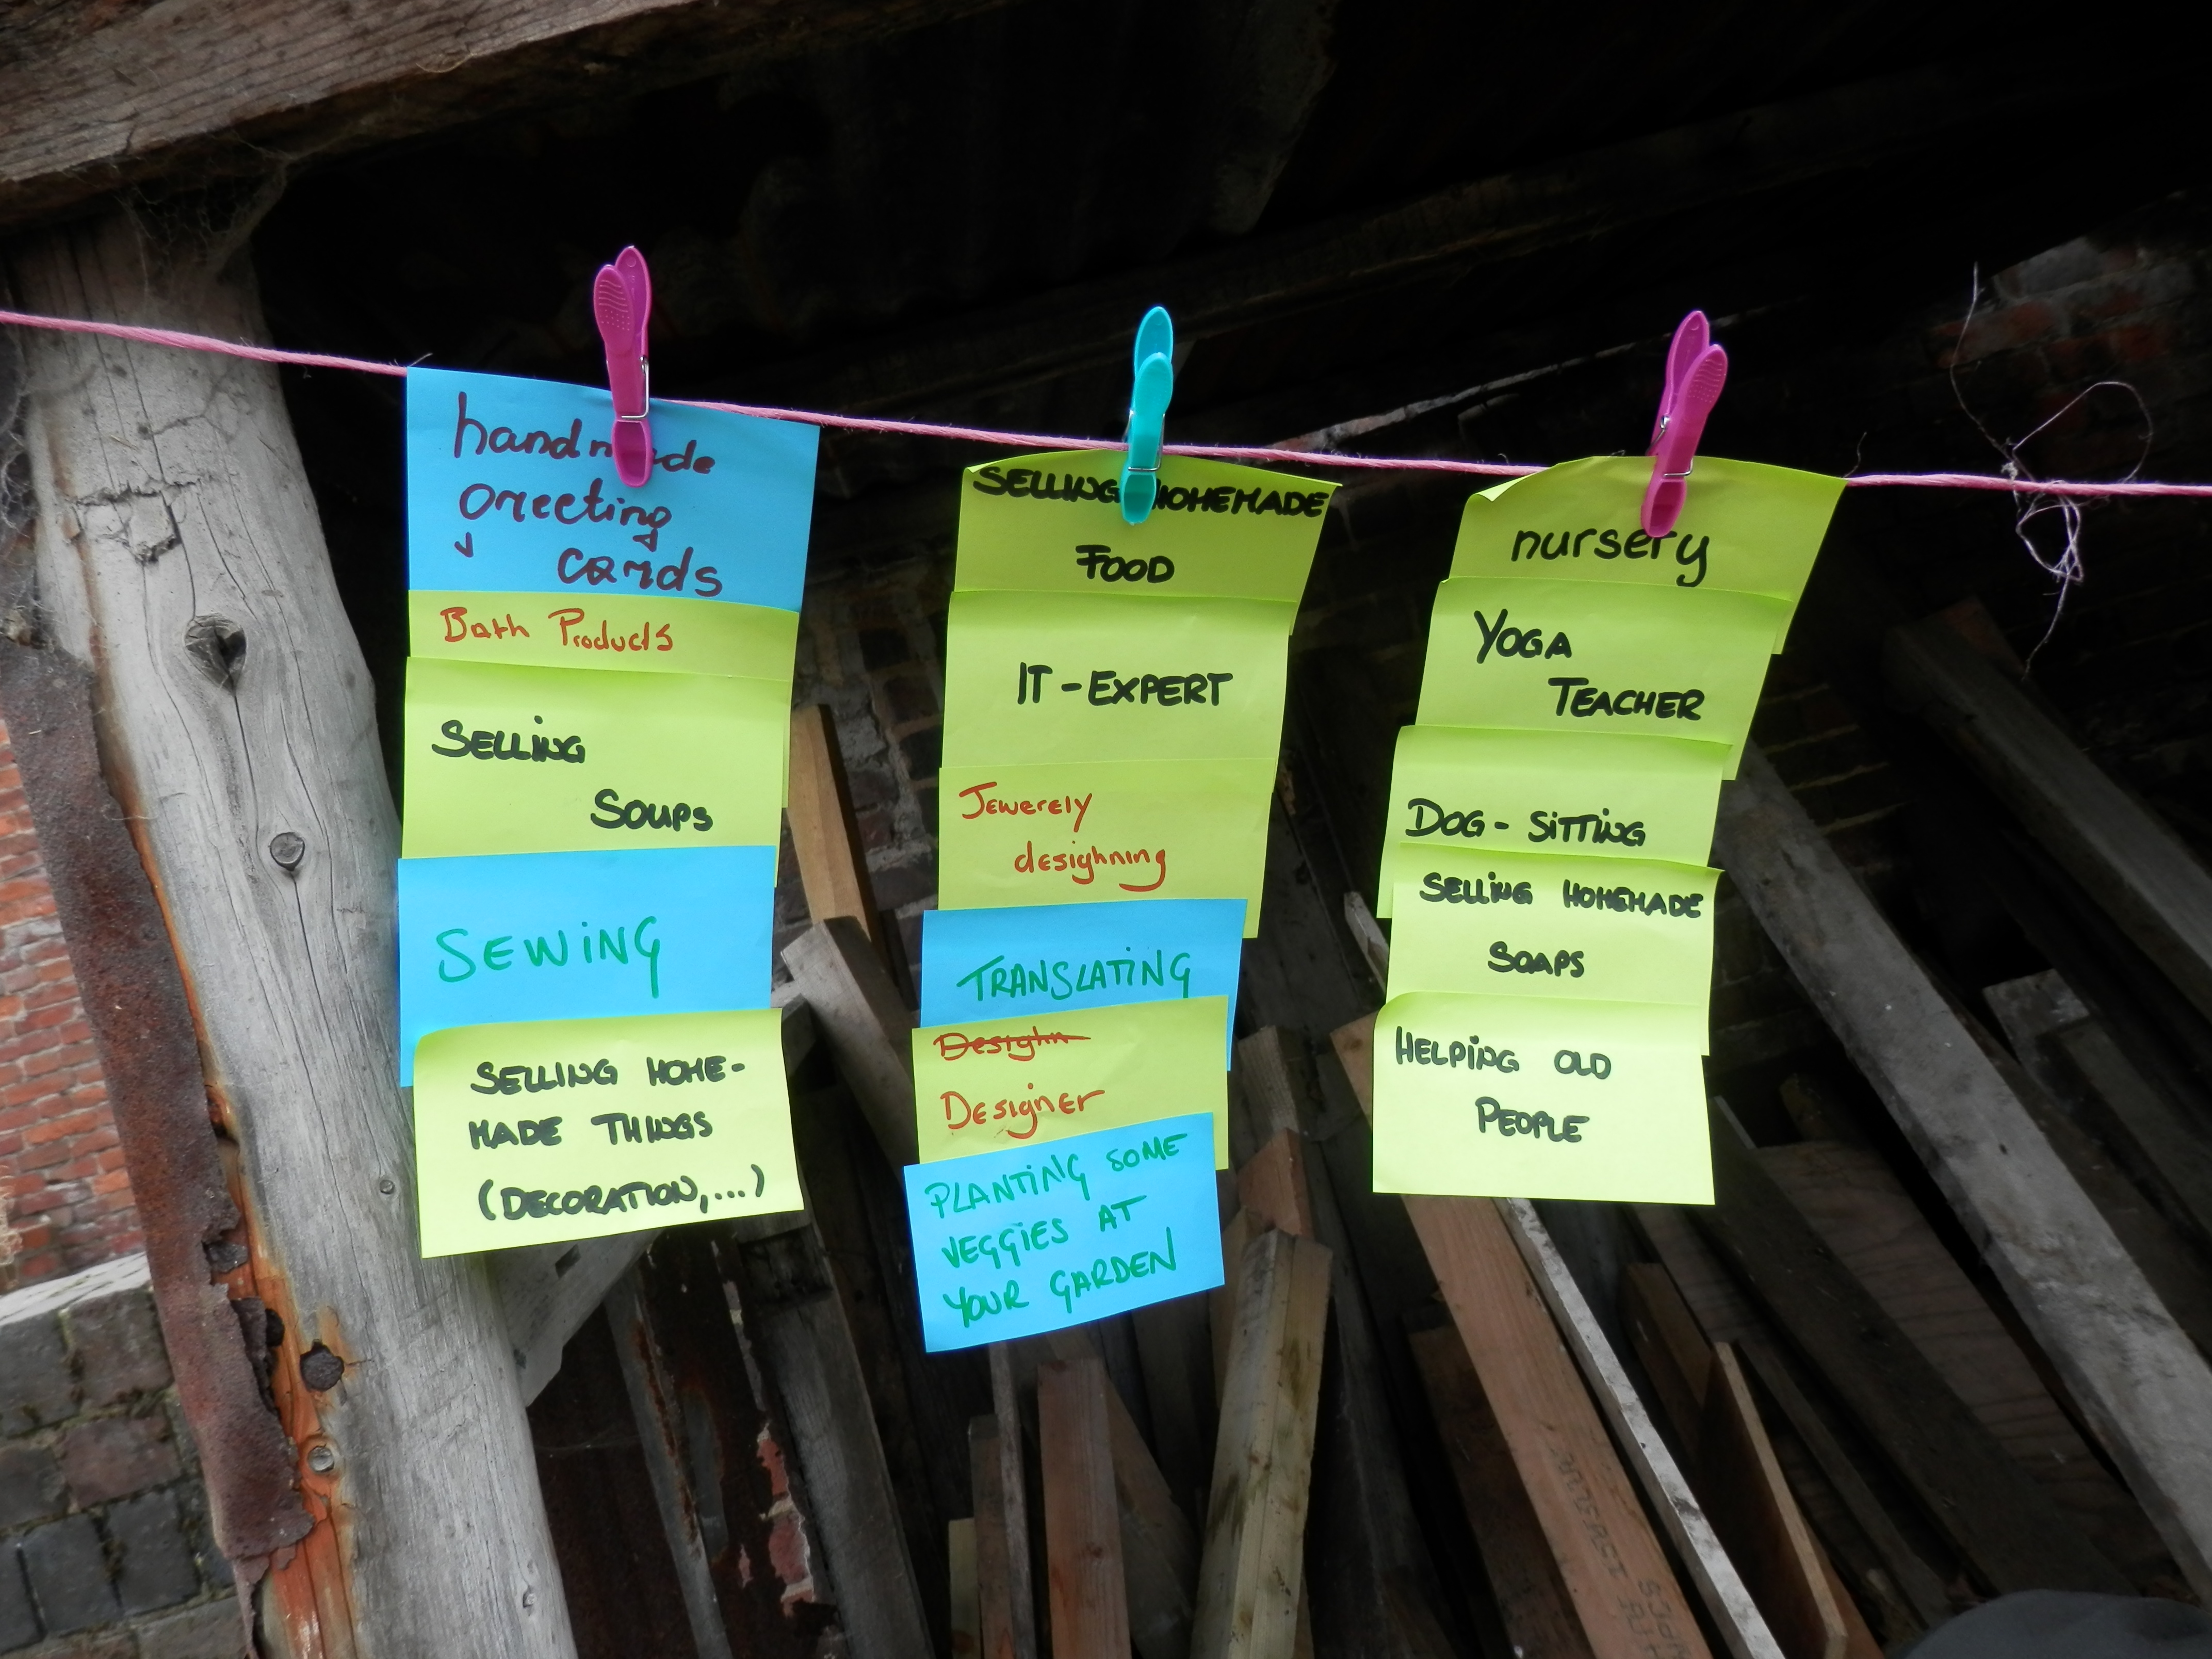 handmade
greeting
cards
Bath Products
SELLING
SOUPS
SEWiNG
SELLING HOME-
MADE THINGS
(DECORATION,...)
SELLING HOMEMADE
FOOD
IT-EXPERT
Jewerely
desighning
TRANSLATiNG
Desighn
Designer
PLANTiNG SOME
VEGGiES AT
YOUR GARDEN
nursery
YOGA
TEACHER
DOG-SiTTiNG
SELLiNG HOMEMADE
SOAPS
HELPiNG OLD
PEOPLE